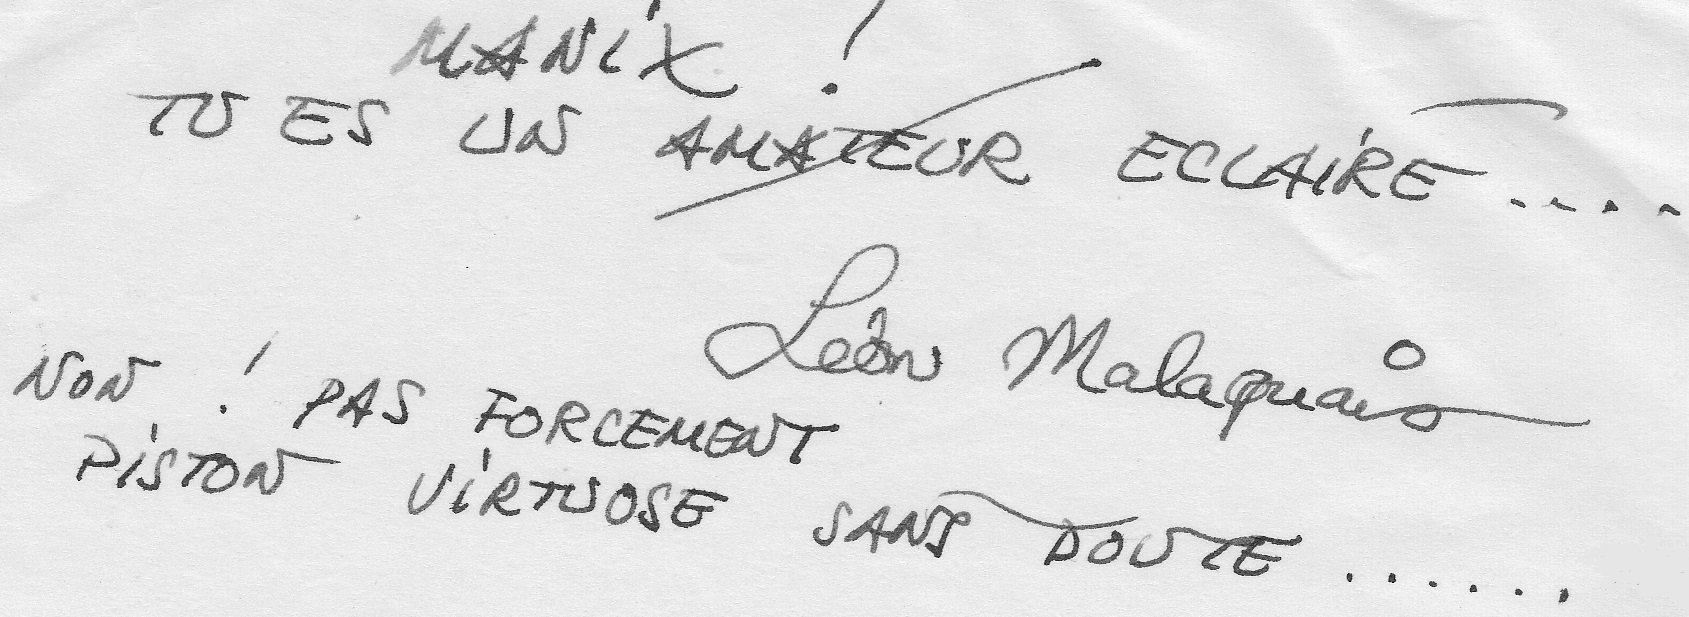 MANIX !
TU ES UN AMATEUR ECLAIRE ....
Léon Malaquais
NON ! PAS FORCEMENT
PISTON VIRTUOSE SANS DOUTE ......